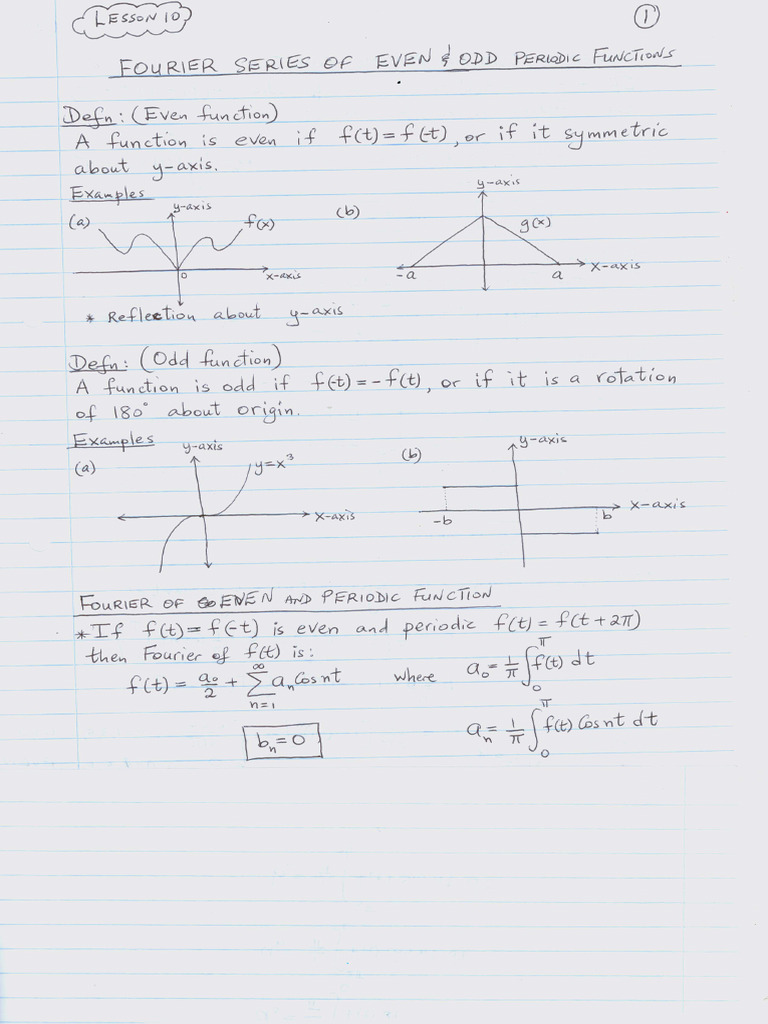 LESSON 10
1
FOURIER SERIES OF EVEN & ODD PERIODIC FUNCTIONS
Defn: (Even function)
A function is even if f(t) = f(-t), or if it symmetric
about y-axis.
Examples
(a) y-axis f(x) x-axis 0
(b) y-axis g(x) x-axis -a a
* Reflection about y-axis
Defn: (Odd function)
A function is odd if f(-t) = -f(t), or if it is a rotation
of 180° about origin.
Examples
(a) y-axis y=x³ x-axis
(b) y-axis x-axis -b b
FOURIER OF EVEN AND PERIODIC FUNCTION
* If f(t) = f(-t) is even and periodic f(t) = f(t + 2π)
then Fourier of f(t) is:
f(t) = a₀/2 + ∑_{n=1}^{∞} aₙ Cos nt where a₀ = 1/π ∫₀^π f(t) dt
bₙ = 0 aₙ = 1/π ∫₀^π f(t) Cos nt dt